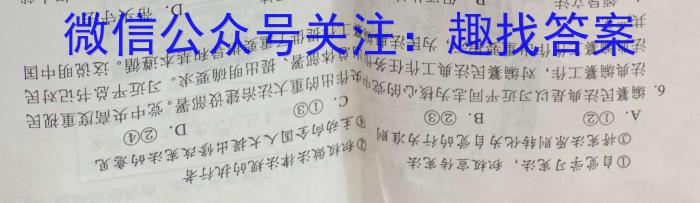 微信公众号关注：趣找答案
①自觉学习宪法，积极宣传宪法 ②积极做法律法规的执行者
③将宪法原则转化为自觉的行为准则 ④主动向全国人大提出修改宪法的意见
A. ①② B. ②③ C. ①③ D. ②④
6. 编纂民法典是以习近平同志为核心的党中央作出的重大法治建设部署。党中央高度重视民
法典编纂工作，对编纂民法典工作任务作出总体部署、提出明确要求。习近平总书记对民
为民 重要指导和基本遵循。这说明中国
共